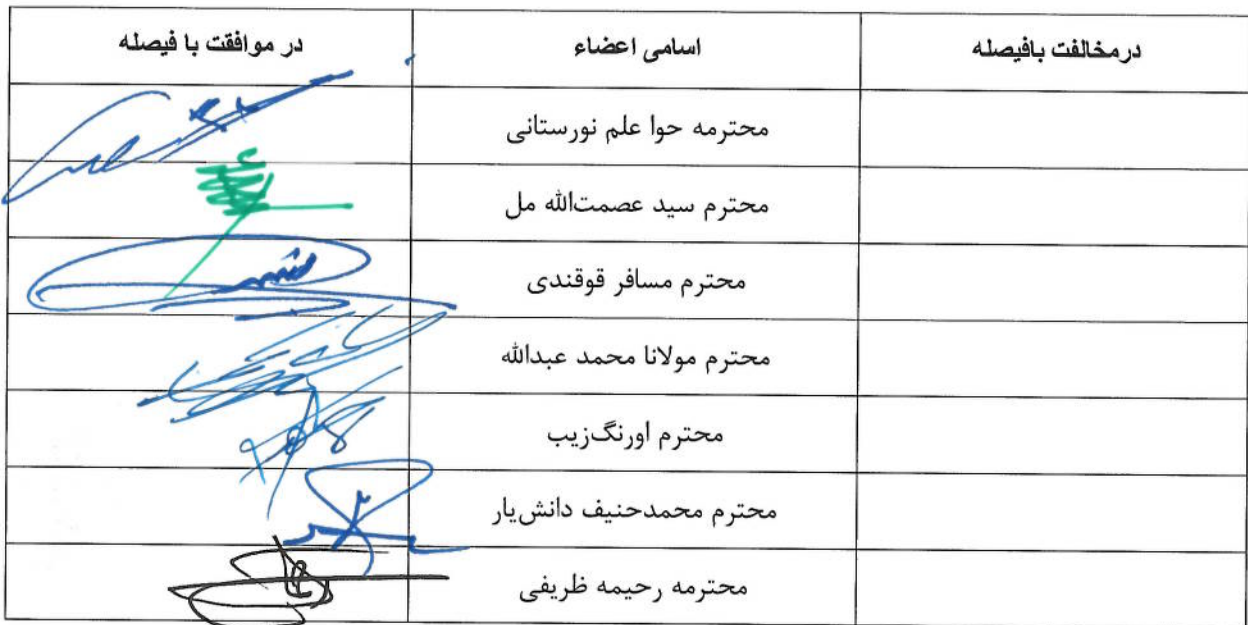 درمخالفت بافیصله اسامی اعضاء در موافقت با فیصله
محترمه حوا علم نورستانی
محترم سید عصمت‌الله مل
محترم مسافر قوقندی
محترم مولانا محمد عبدالله
محترم اورنگ‌زیب
محترم محمدحنیف دانش‌یار
محترمه رحیمه ظریفی